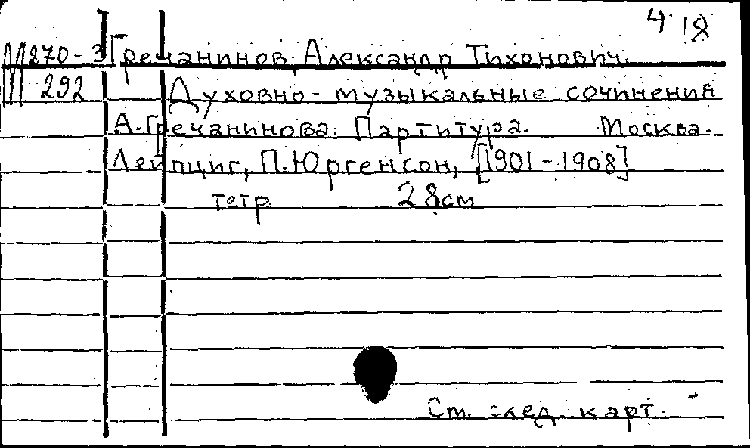 4 18
М 270-3 Гречанинов, Александр Тихонович.
292 Духовно-музыкальные сочинения
А. Гречанинова. Партитура. Москва.
Лейпциг, П. Юргенсон, [1901-1908]
тетр. 28см
См. след. карт.